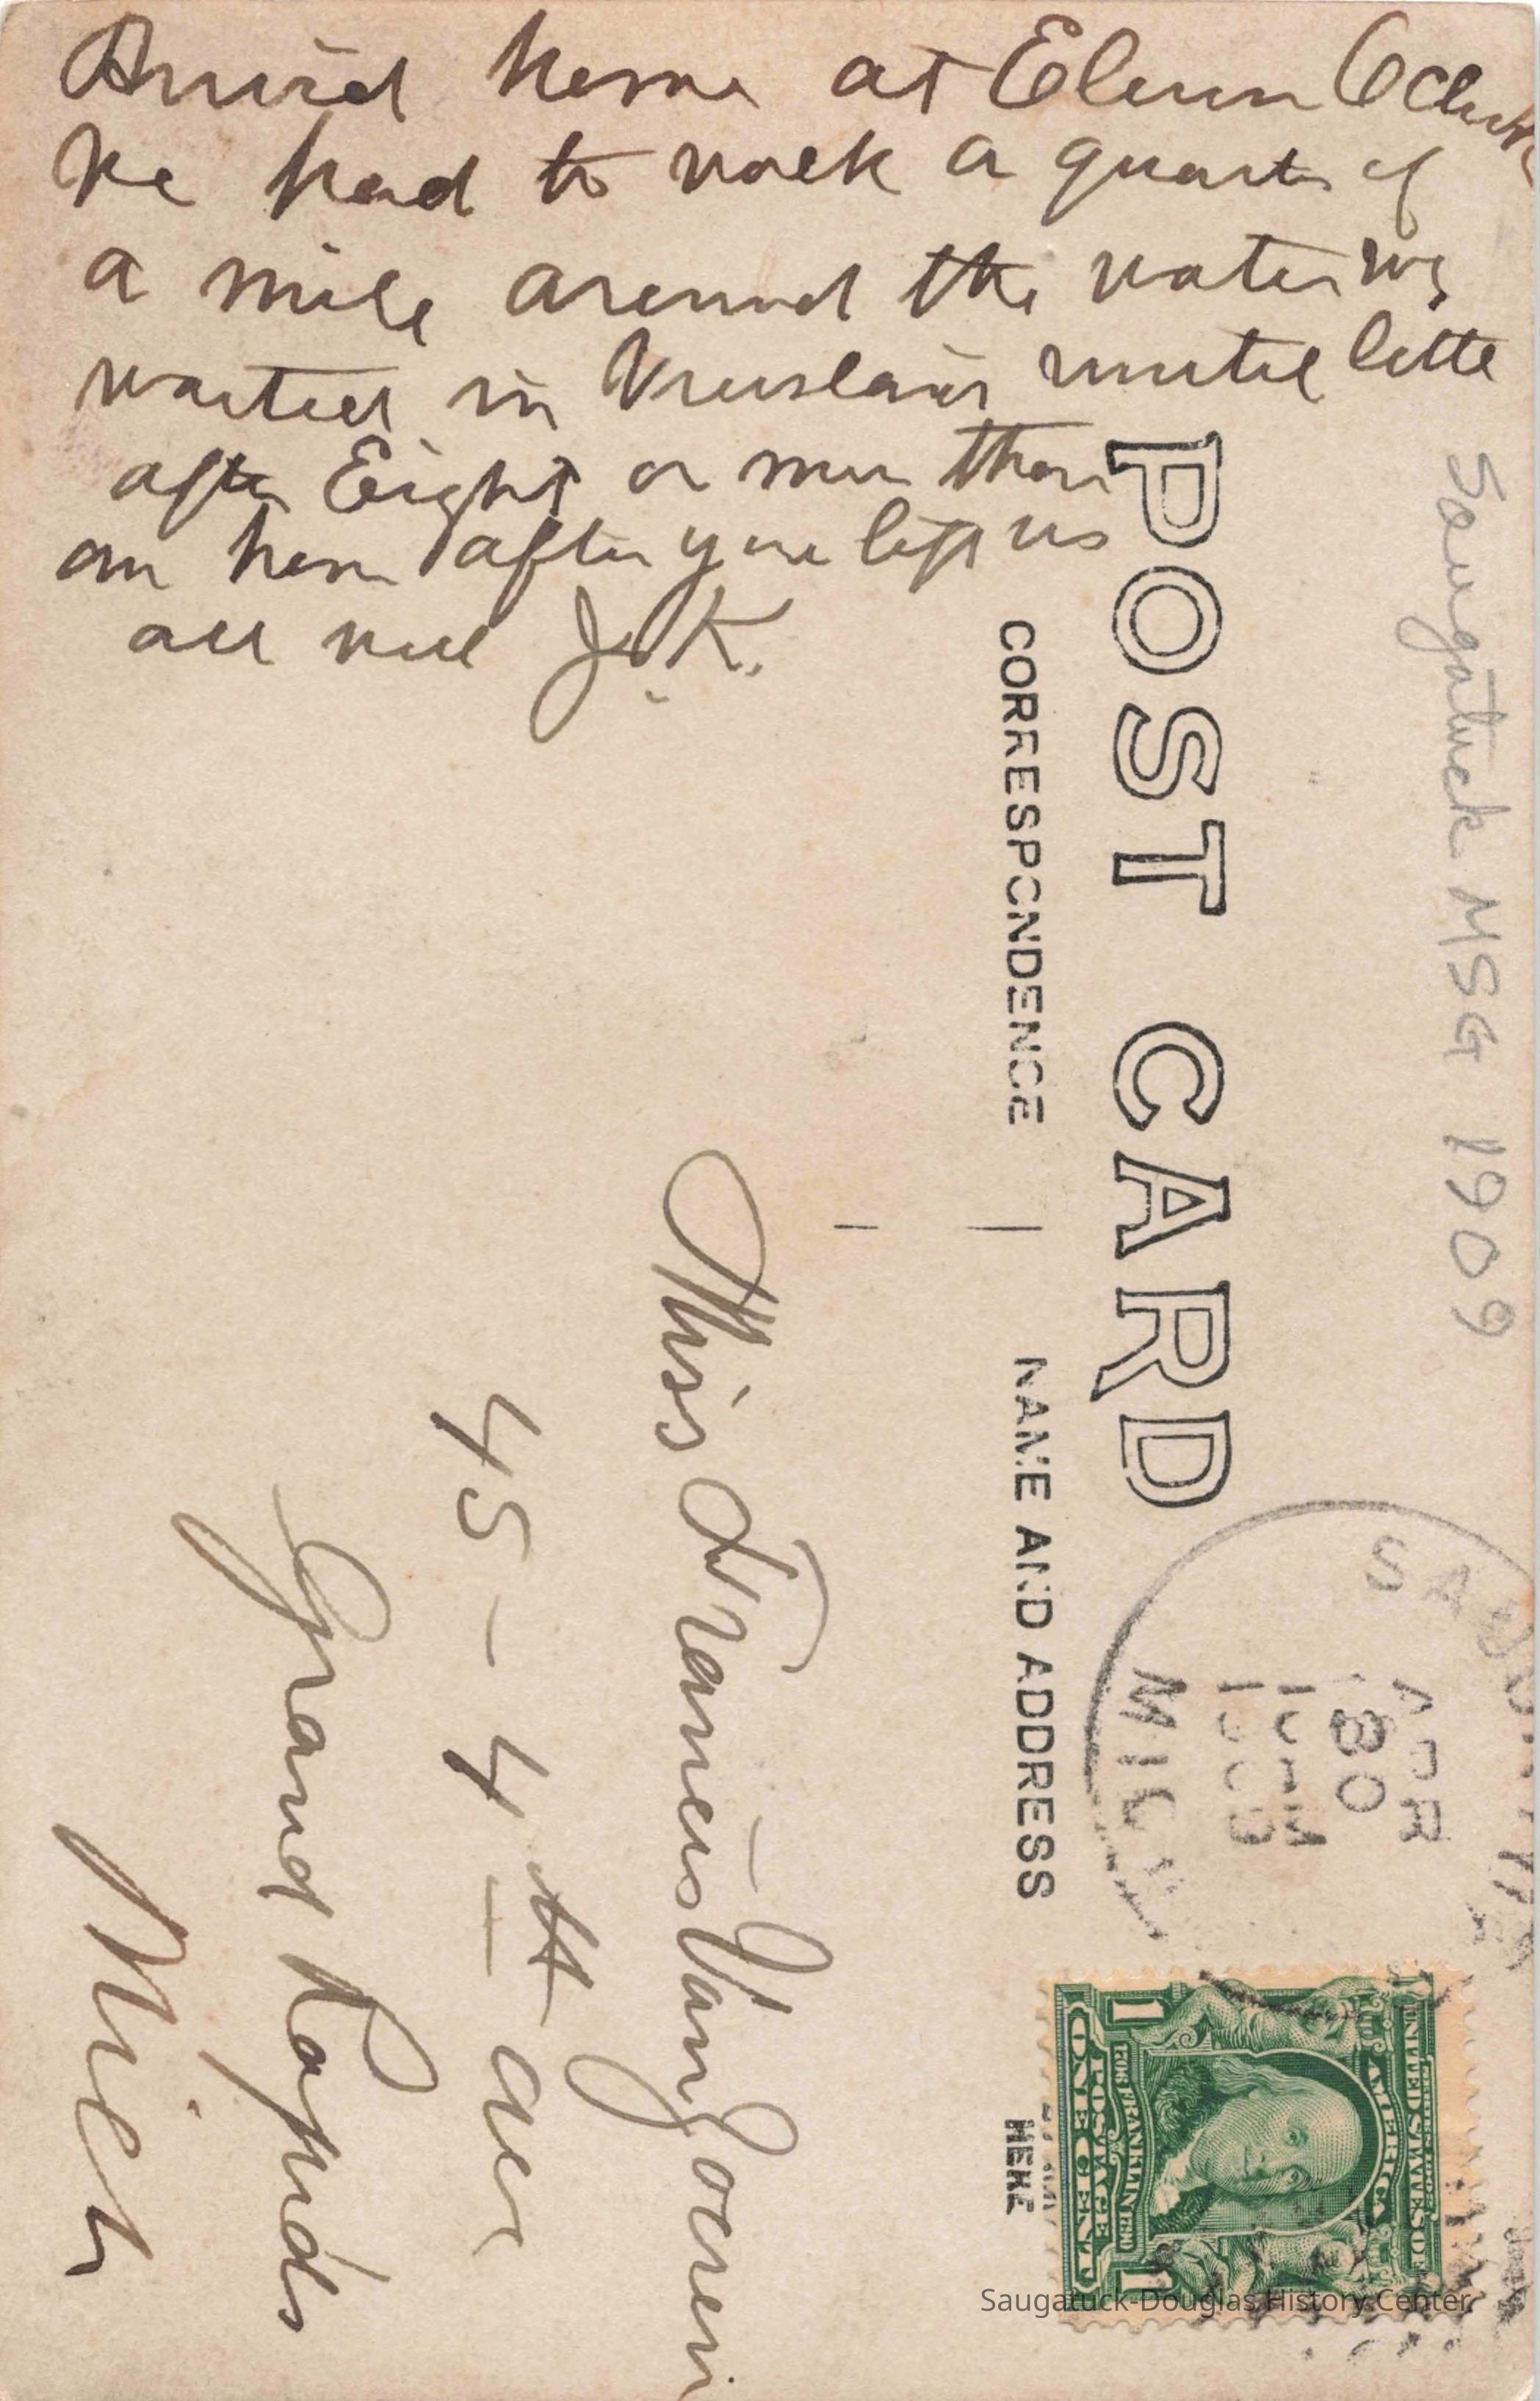 Arrived home at Eleven Oclock
We had to walk a quarter of
a mile around the water We
waited in until little
after Eight or more than
an hour after you left us
all well J.K.
POST CARD
CORRESPONDENCE
NAME AND ADDRESS
Saugatuck MSG 1909
SAUGATUCK
APR
30
10 AM
MICH
UNITED STATES OF AMERICA
FRANKLIN
POSTAGE
1 ONE CENT 1
HERE
Miss Frances Van
45 - 4 th ave
Grand Rapids
Mich
Saugatuck-Douglas History Center